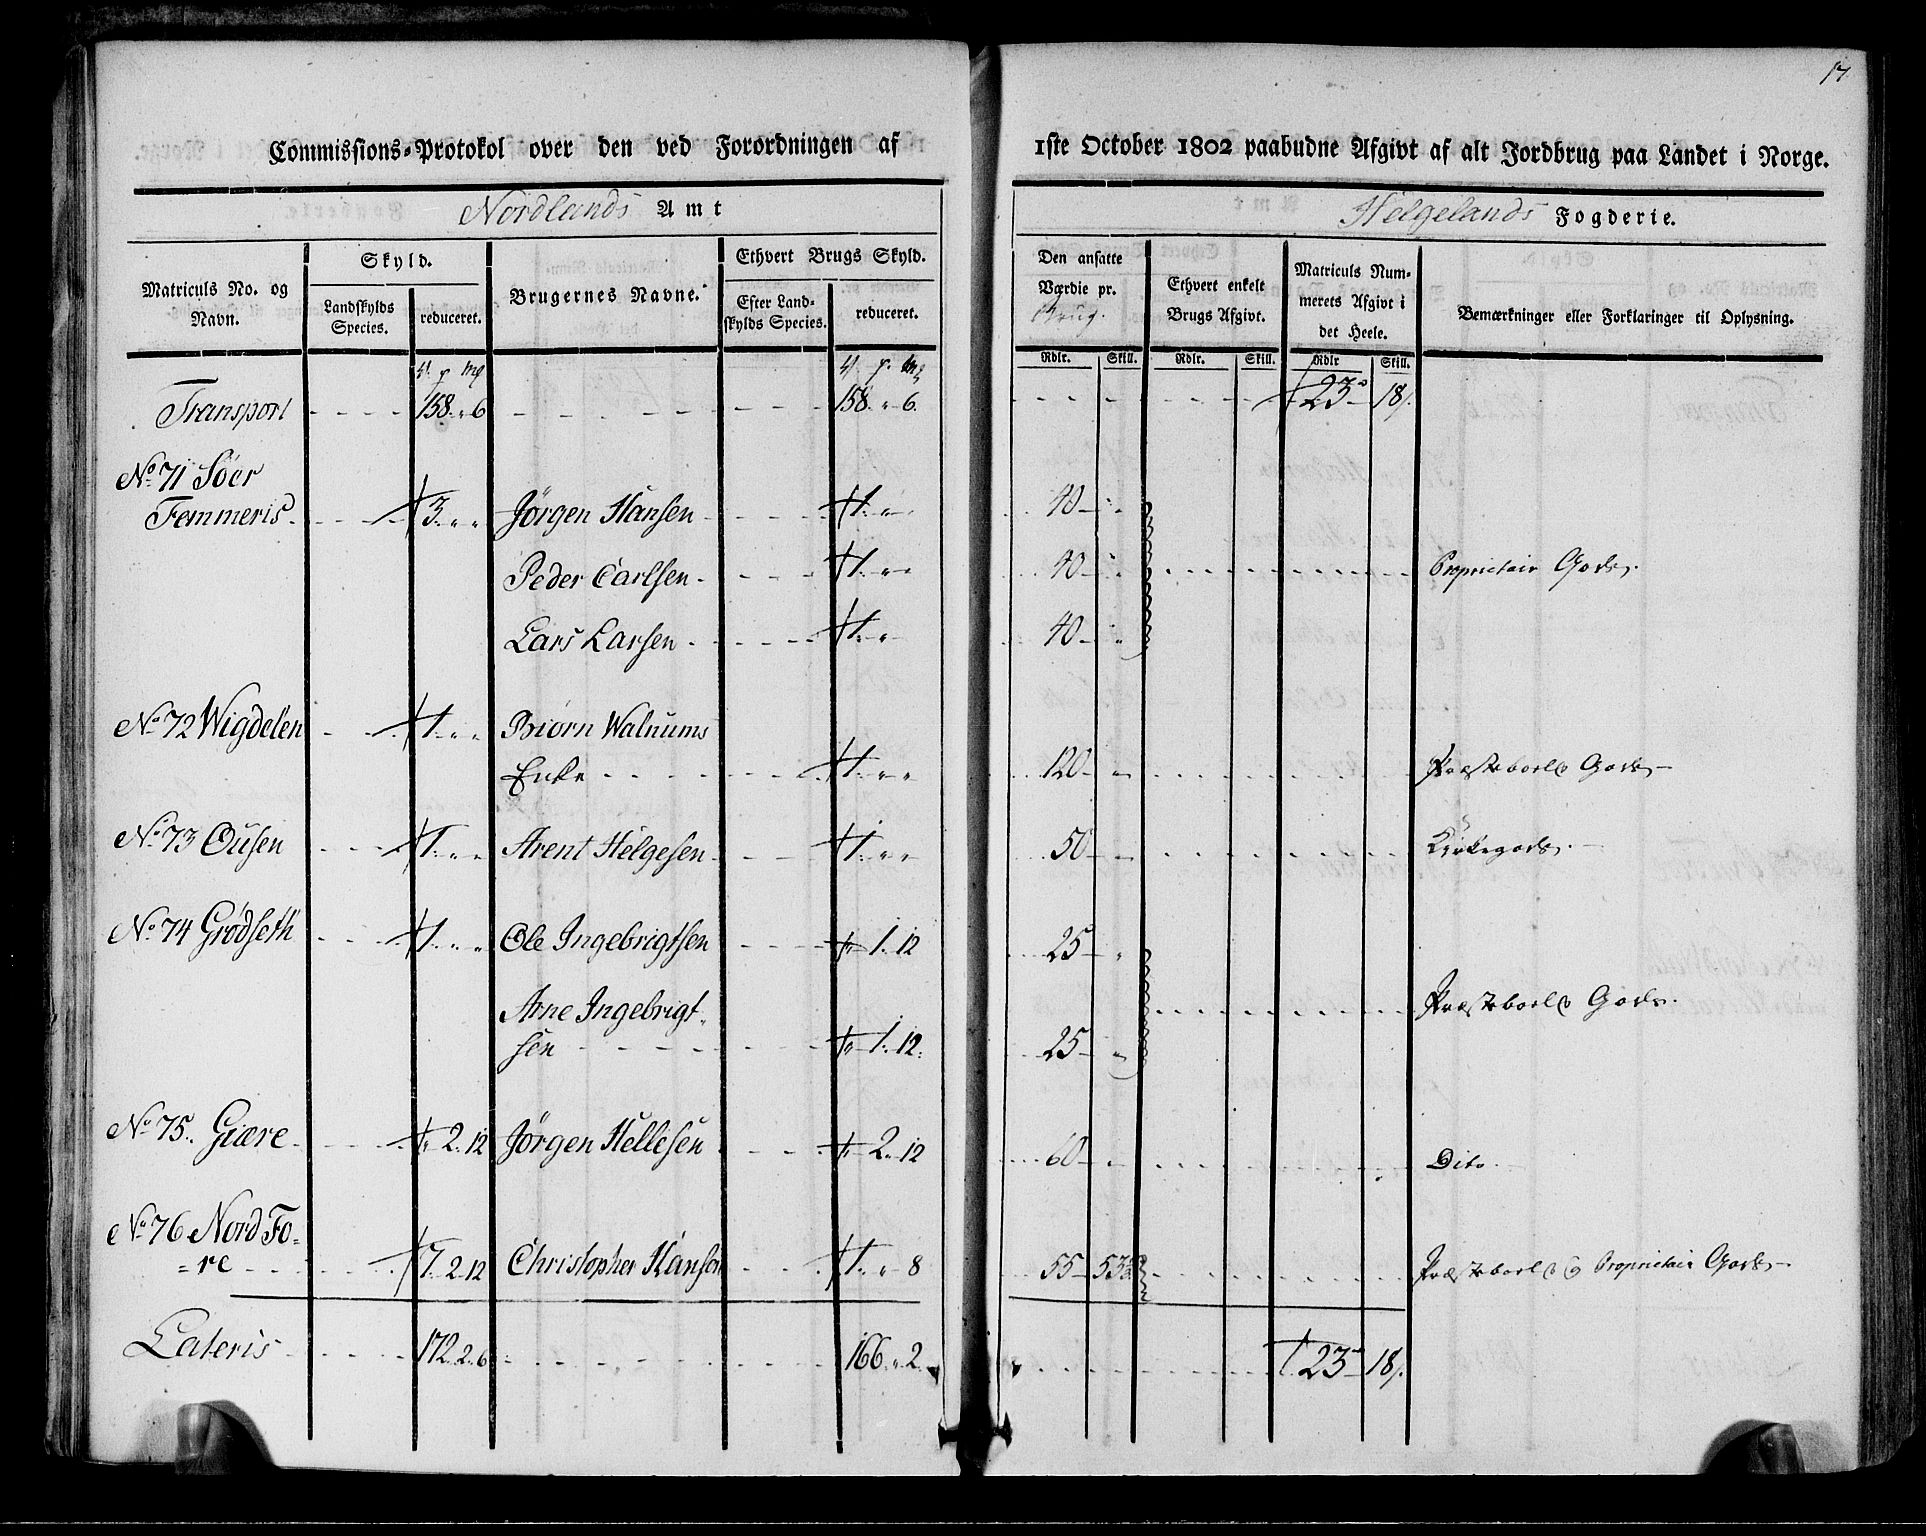 17
Commissions-Protokol over den ved Forordningen af 1ste October 1802 paabudne Afgivt af alt Jordbrug paa Landet i Norge.
Nordlands Amt Helgelands Fogderie.
Matriculs No. og Navn. Skyld. Landskylds Species. reduceret. Brugernes Navne. Ethvert Brugs Skyld. Efter Landskylds Species. reduceret. Den ansatte Værdie pr. Brug. Ethvert enkelt Brugs Afgivt. Matriculs Nummerets Afgivt i det Heele. Bemærkninger eller Forklaringer til Oplysning.
Rdlr. Skill. Rdlr. Skill. Rdlr Skill.
Transport 158 " 6 158 " 6. 23 18
No 71 Söer
Femmeris 3 " " Jørgen Hansen 1 " " 40 "
Peder Carlsen 1 " " 40 " Proprietair Gods.
Lars Larsen 1 " " 40 "
No 72 Wigdelen 1 " " Biørn Walnums
Enke 1 " " 120 " Præsteboels Gods
No 73 Ousen 1 " " Arent Helgesen 1 " " 50 " Kirkegods.
No 74 Grødseth 1 " " Ole Ingebrigtsen " 1. 12 25 "
Arne Ingebrigt- Præsteboels Gods.
sen " 1. 12. 25 "
No 75. Giære " 2. 12 Jørgen Hellesen " 2. 12 60 " Dito.
No 76 Nord Fo-
=re 1. 2. 12 Christopher Hansen 1. " 8 55 53 Præsteboels og Proprietair Gods
Lateris 172. 2. 6 166. " 2. 23 18